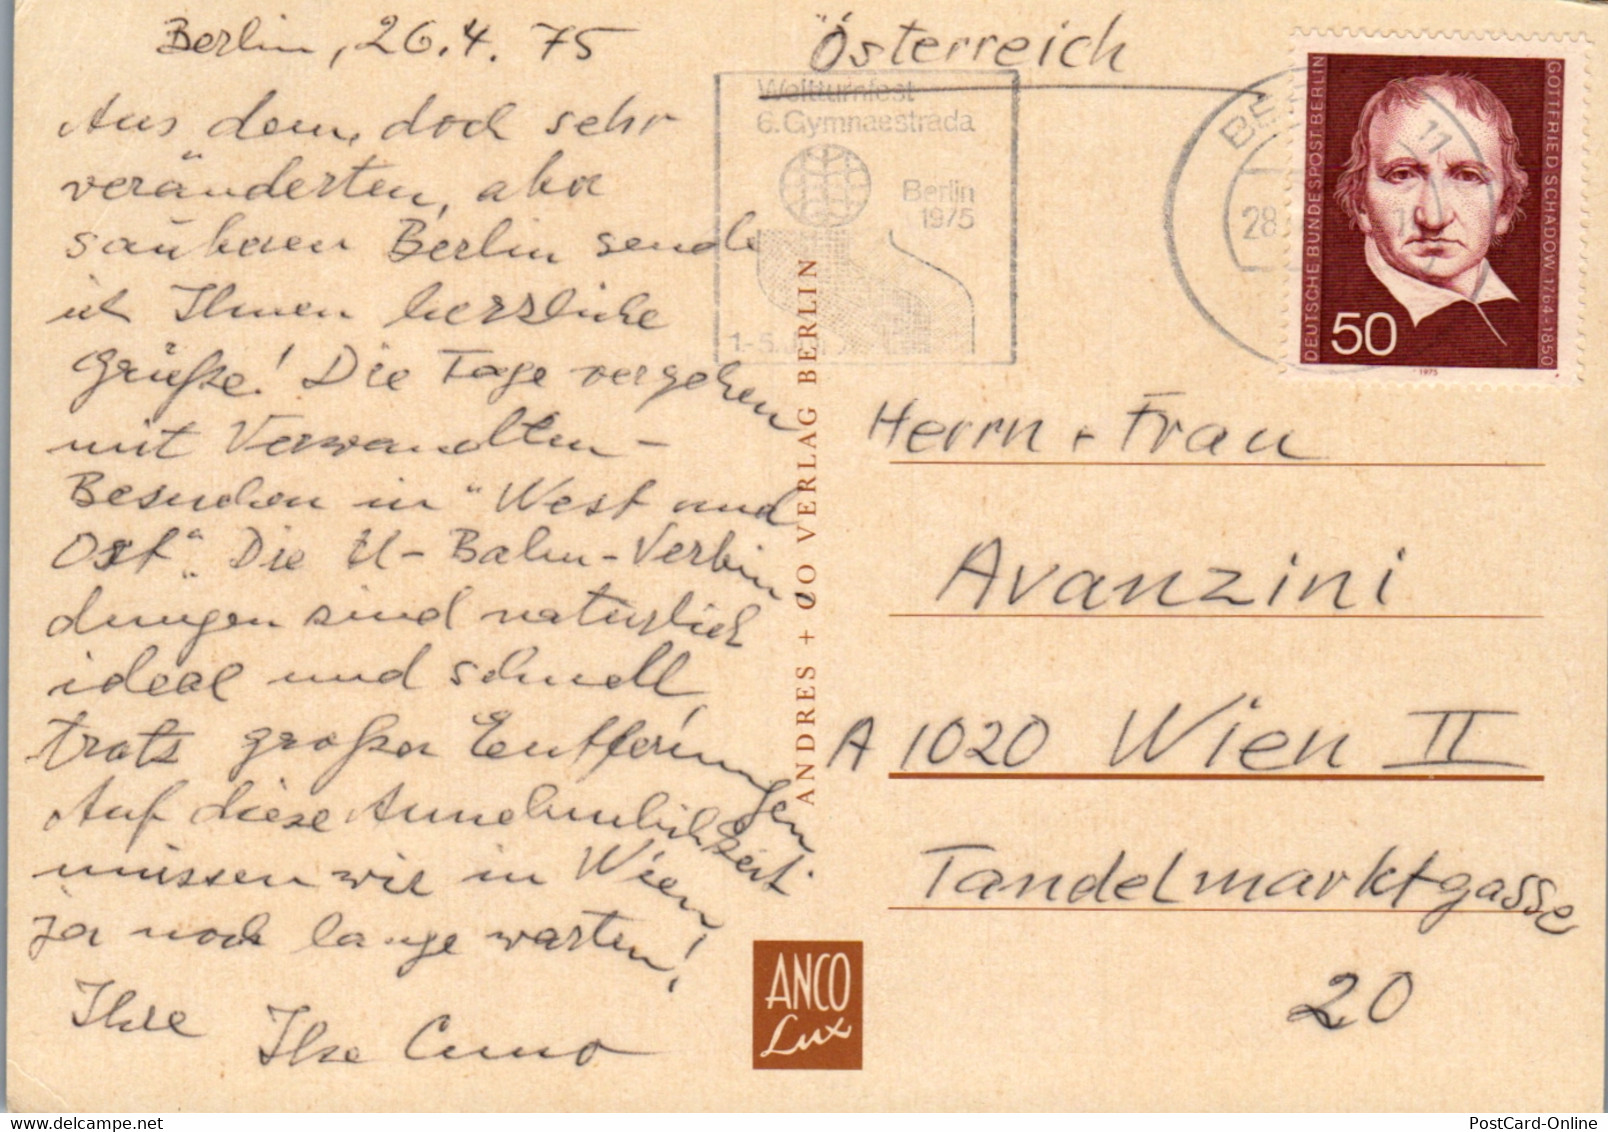 Berlin, 26.4.75
Aus dem, doch sehr
veränderten, aber
sauberen Berlin sende
ich Ihnen herzliche
Grüße! Die Tage vergehen
mit Verwandten-
Besuchen in "West und
Ost". Die U-Bahn-Verbin
dungen sind natürlich
ideal und schnell,
trotz großer Entfernungen
Auf diese Annehmlichkeit
müssen wir in Wien
ja noch lange warten!
Ihre
Ilse Cuno
Österreich
Weltturnfest
6. Gymnaestrada
Berlin
1975
1.-5.
28.
11
DEUTSCHE BUNDESPOST BERLIN
GOTTFRIED SCHADOW 1764-1850
50
1975
ANDRES + CO VERLAG BERLIN
Herrn + Frau
Avanzini
A 1020 Wien II
Tandelmarktgasse
20
ANCO
Lux
PostCard-Online
www.delcampe.net